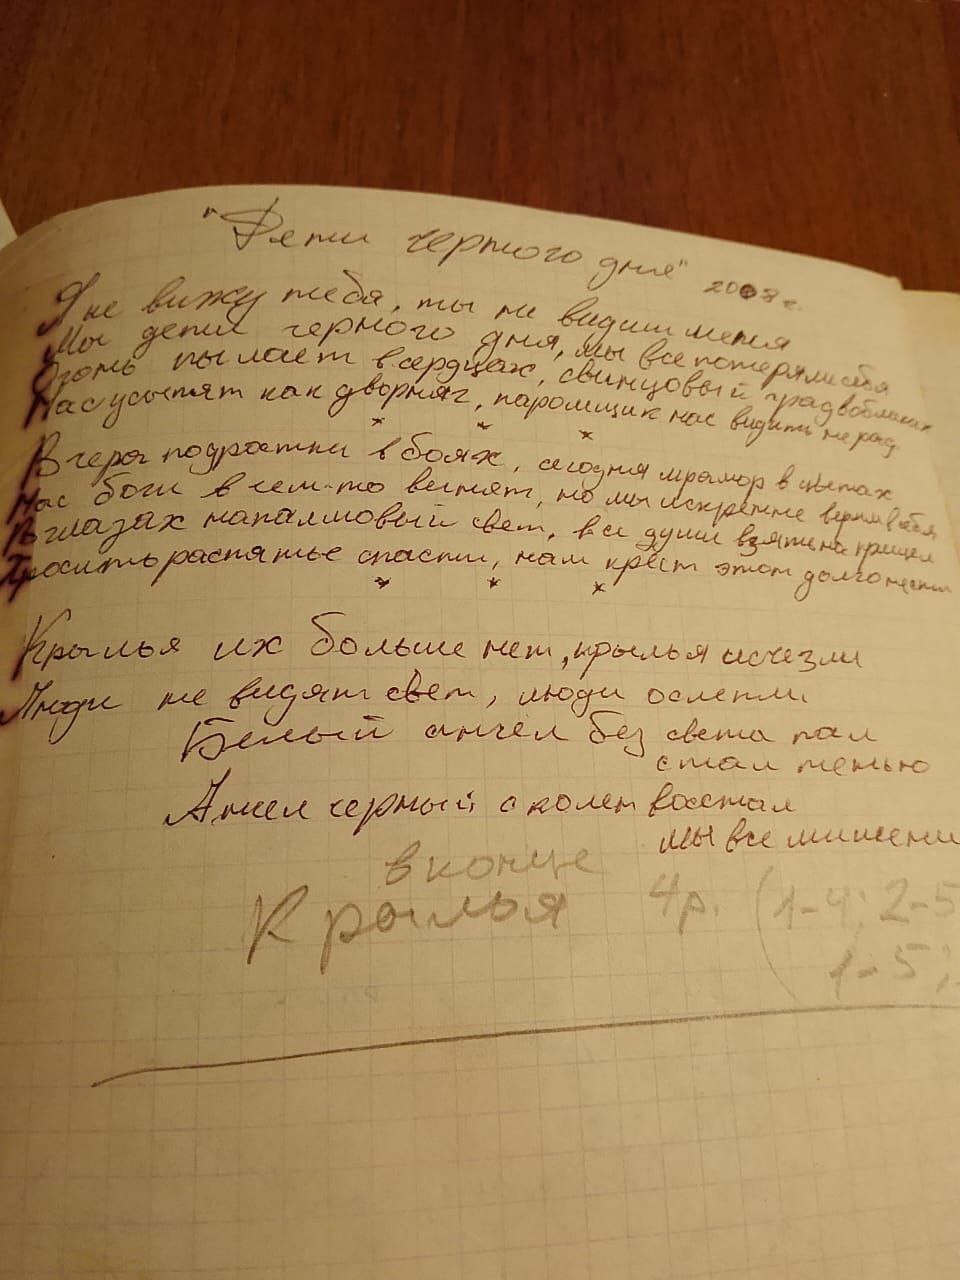 "Дети черного дня" 2008 г.
Я не вижу тебя, ты не видишь меня
Мы дети черного дня, мы все потеряли себя
Огонь пылает в сердцах, свинцовый град в облаках
Нас усыпят как дворняг, паромщик нас видить не рад
* * *
Вчера подростки в боях, сегодня мрамор в цветах
Нас боги в чем-то винят, но мы искренне верим в себя
В глазах напалмовый свет, все души взяты на прицел
Просить распятье спасти, нам крест этот долго нести
* * *
Крылья их больше нет, крылья исчезли
Люди не видят свет, люди ослепли
Белый ангел без света пал
стал тенью
Ангел черный с колен восстал
мы все мишени
в конце
Крылья 4р. (1-4; 2-5
1-5;